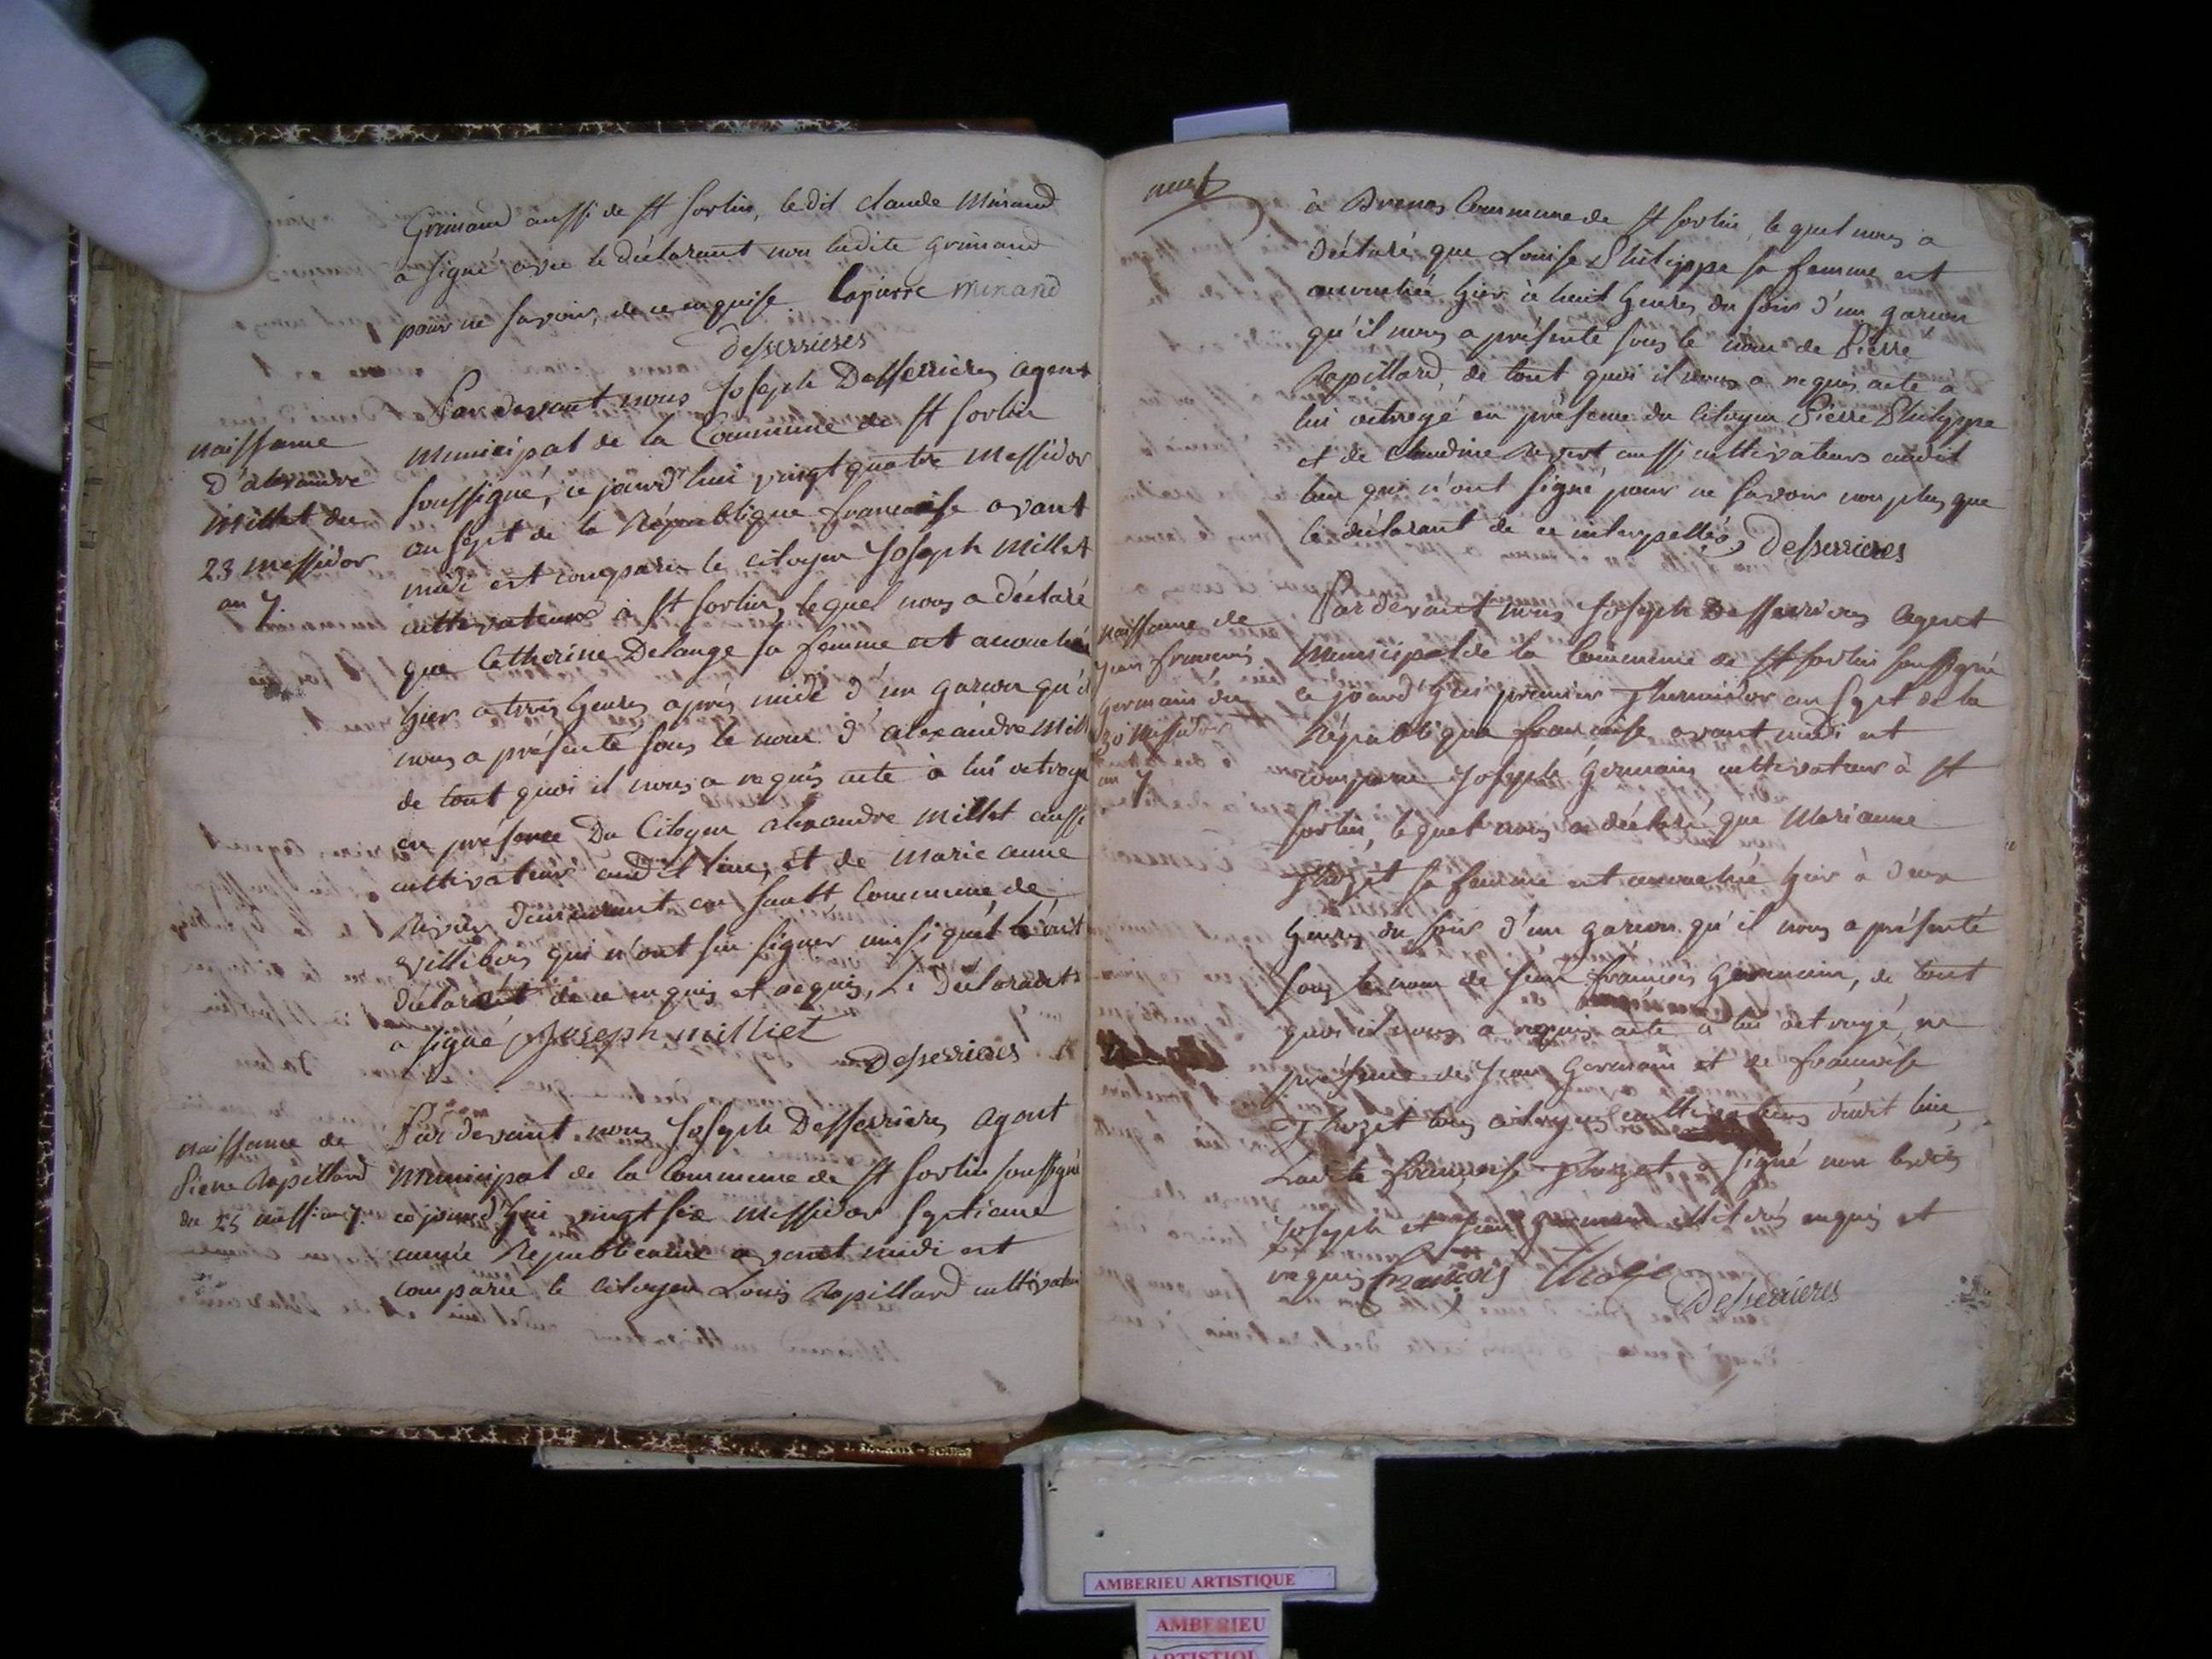 Grimand aussi de St Sorlin, le dit claude Minand
a signé avec le déclarant non ladite grimand
pour ne savoir, de ce enquise. Lapierre minand
Desserrieres
naissance
d'alexandre
Millet du
23 messidor
an 7.
Par devant nous Joseph Desserrieres agent
municipal de la Commune de St Sorlin
soussigné, ce jourd'hui vingt quatre messidor
an sept de la République francaise avant
midi est comparu le citoyen Joseph Millet
cultivateur à St Sorlin, lequel nous a déclaré
que Catherine Delange sa femme est accouchée
hier a trois heures après midi d'un garcon qu'il
nous a présenté sous le nom d'alexandre Mill
de tout quoi il nous a requis acte à lui octroyé
en présence Du Citoyen alexandre Millet aussi
cultivateur audit lieu, et de Marie anne
demeurant en Commune de
Villebois qui n'ont su signer
déclarant de ce enquis et requis, Le Déclarant
a signé Joseph milliet
Desserrieres
naissance de
Pierre Rapillard
du 25 messi. an 7.
Par devant nous Joseph Desserrières agent
municipal de la Commune de St Sorlin soussigné
ce jourd'hui vingt six messidor septieme
année Republicaine avant midi est
comparu le citoyen Louis Rapillard cultivateur
à Brenos Commune de St Sorlin, le quel nous a
déclaré que Louise Philippe sa femme est
accouchée hier à huit heures du soir d'un garcon
qu'il nous a présenté sous le nom de Pierre
Rapillard, de tout quoi il nous a requis acte a
lui octroyé en présence du Citoyen Pierre Philippe
et de Claudine aussi cultivateurs audit
lieu qui n'ont signé pour ne savoir non plus que
le déclarant de ce interpellés, Desserrieres
naissance de
Jean francois
Germain du
30 Messidor
an 7
Par devant nous Joseph Desserrieres agent
Municipal de la Commune de St Sorlin soussigné
ce jourd'hui premier Thermidor an sept de la
République francaise avant midi est
comparu Joseph Germain cultivateur à St
Sorlin, lequel nous a déclaré que Marianne
Thozet sa femme est accouchée hier à deux
heures du soir d'un garcon qu'il nous a présenté
sous le nom de Jean francois Germain, de tout
quoi il nous a requis acte a lui octroyé, en
présence de Jean Germain et de francoise
Thozet tous citoyens cultivateurs dudit lieu,
Ladite francoise Thozet a signé non lesdits
Joseph et Jean germain illitérés enquis et
requis francois
Desserrieres
AMBERIEU ARTISTIQUE
AMBERIEU
ARTISTIQUE